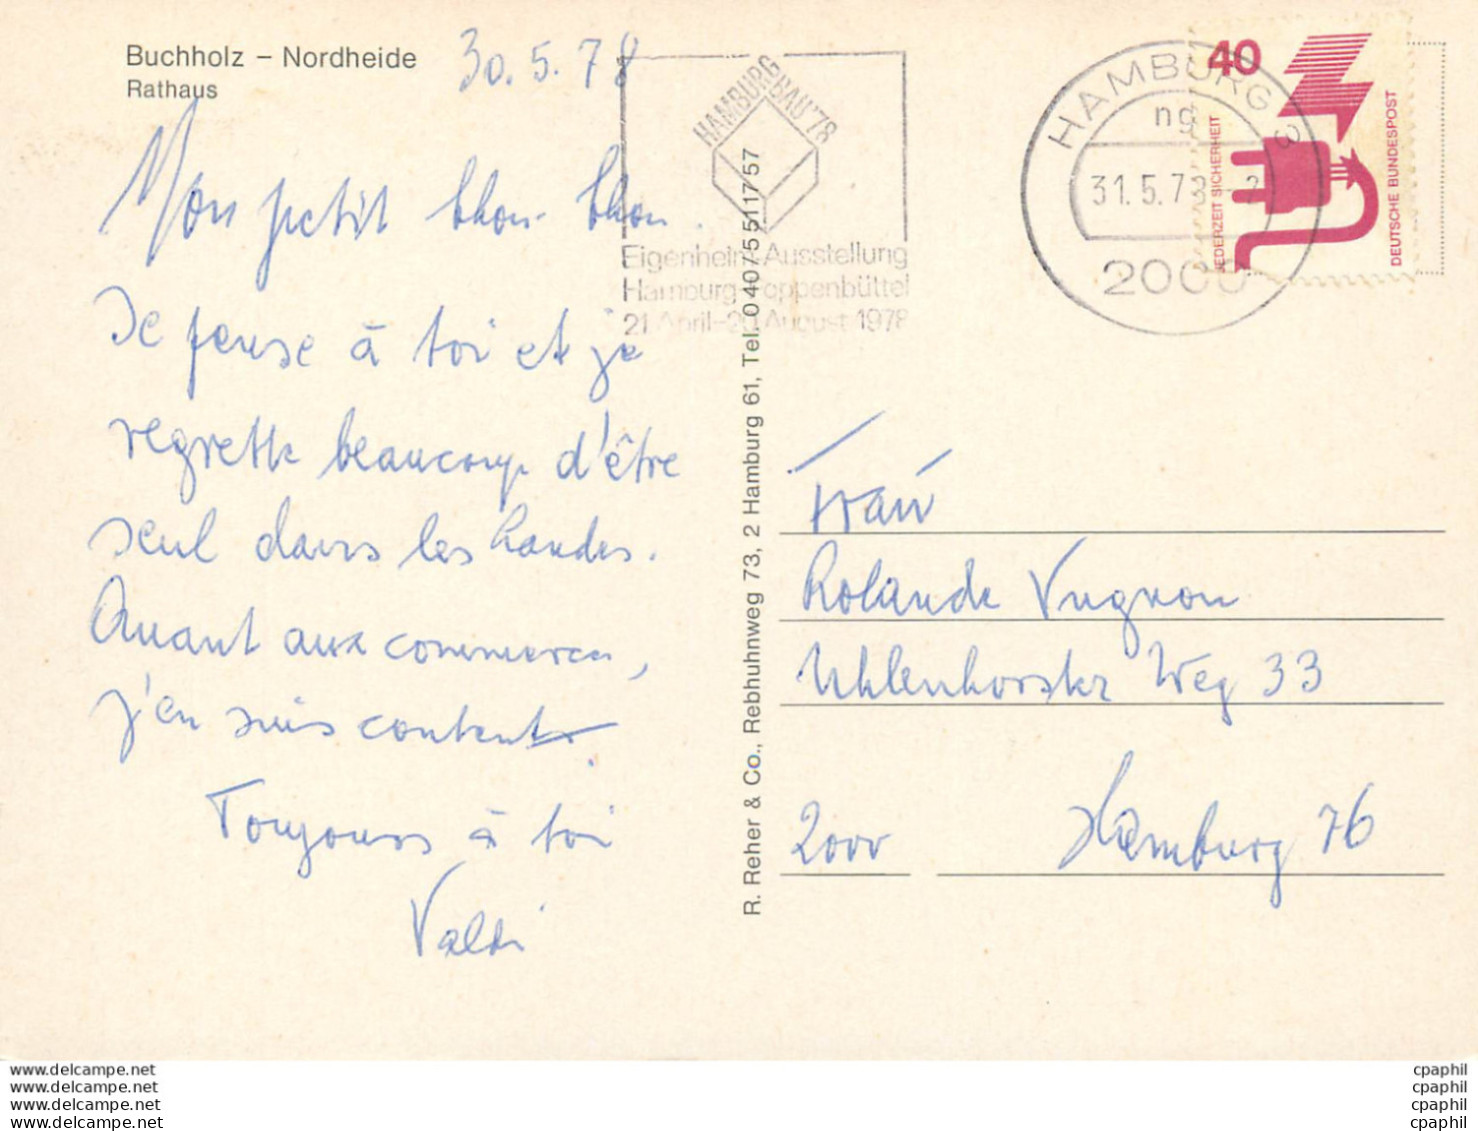 Buchholz – Nordheide
Rathaus
30.5.78
Mon petit chon-chon.
Je pense à toi et je
regrette beaucoup d'être
seul dans les landes.
Quant aux commerces,
j'en suis content.
Toujours à toi
Valdi
HAMBURG BAU '78
Eigenheim-Ausstellung
Hamburg-Poppenbüttel
21 April–20 August 1978
HAMBURG
ng
31.5.78
2000
40
JEDERZEIT SICHERHEIT
DEUTSCHE BUNDESPOST
R. Reher & Co., Rebhuhnweg 73, 2 Hamburg 61, Tel. 040/5511757
Frau
Rolande Vugnon
Uhlenhorster Weg 33
2000 Hamburg 76
www.delcampe.net
www.delcampe.net
www.delcampe.net
www.delcampe.net
cpaphil
cpaphil
cpaphil
cpaphil